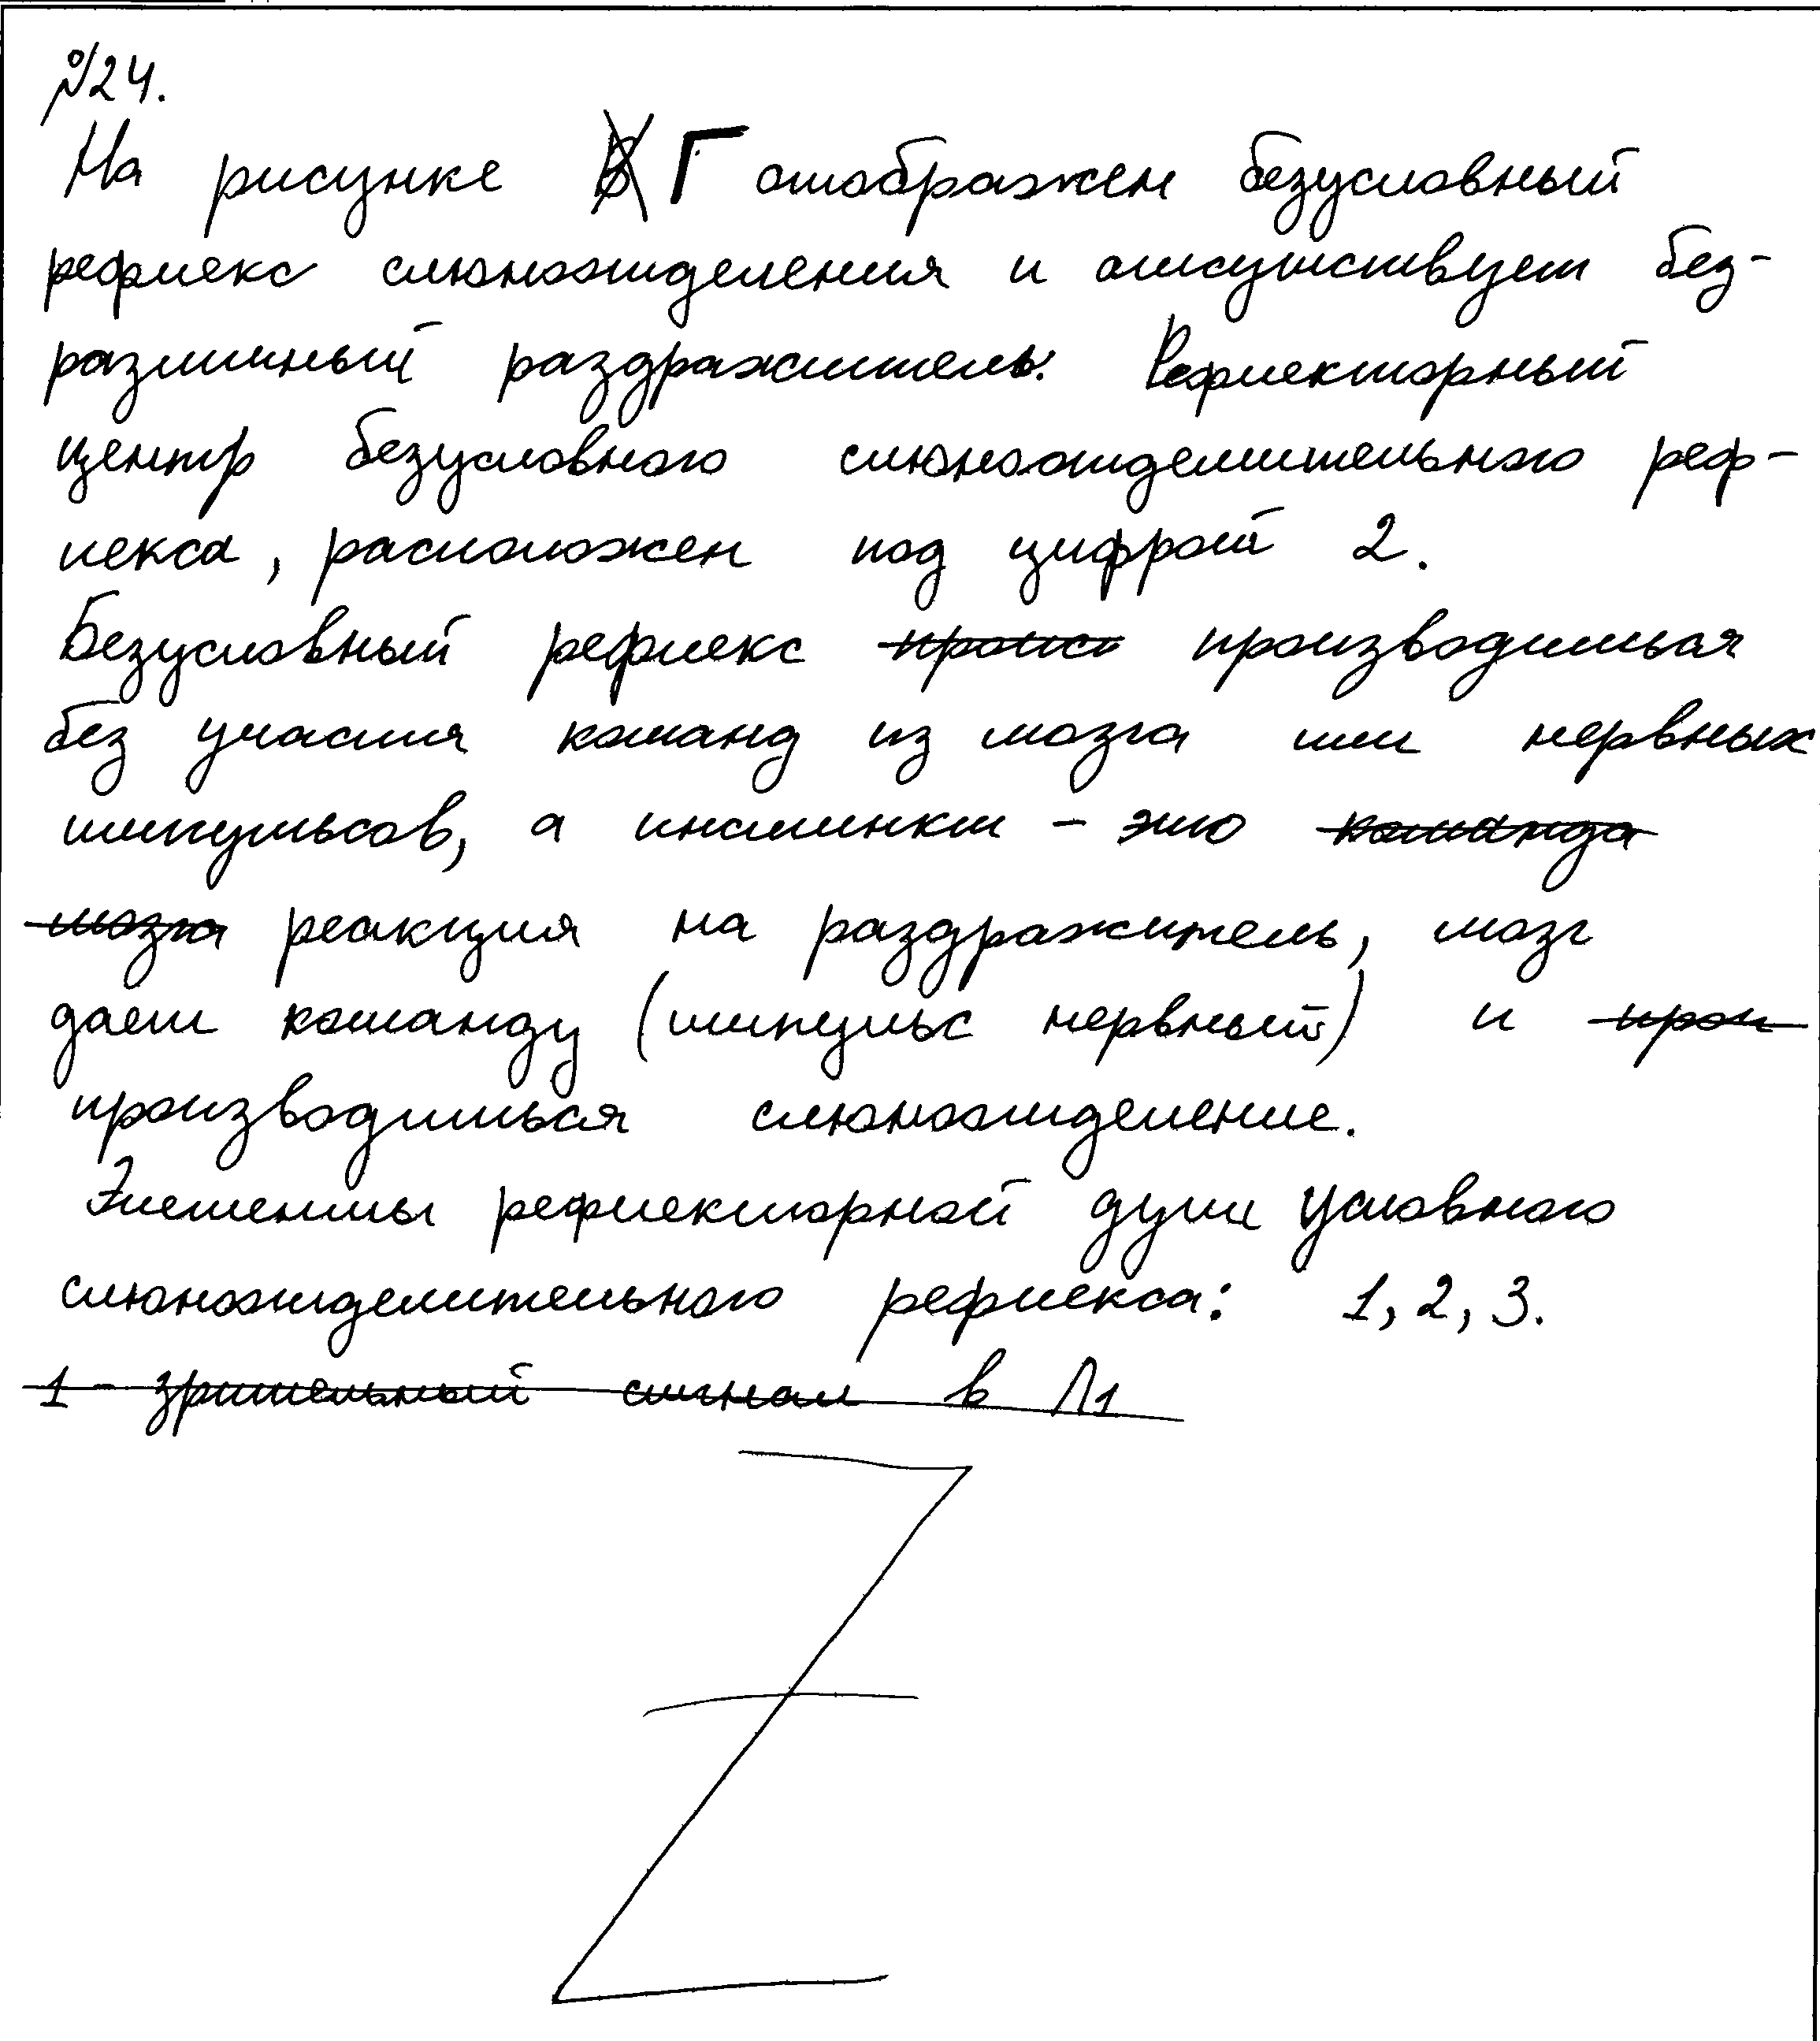 №24.
На рисунке В Г отображен безусловный
рефлекс слюноотделения и отсутствует без-
различный раздражитель. Рефлекторный
центр безусловного слюноотделительного реф-
лекса, расположен под цифрой 2.
Безусловный рефлекс произ производиться
без участия команд из мозга или нервных
импульсов, а инстинкт - это команда
мозга реакция на раздражитель, мозг
дает команду (импульс нервный) и прои
производиться слюноотделение.
Элементы рефлекторной дуги условного
слюноотделительного рефлекса: 1, 2, 3.
1 - зрительный сигнал в Л1